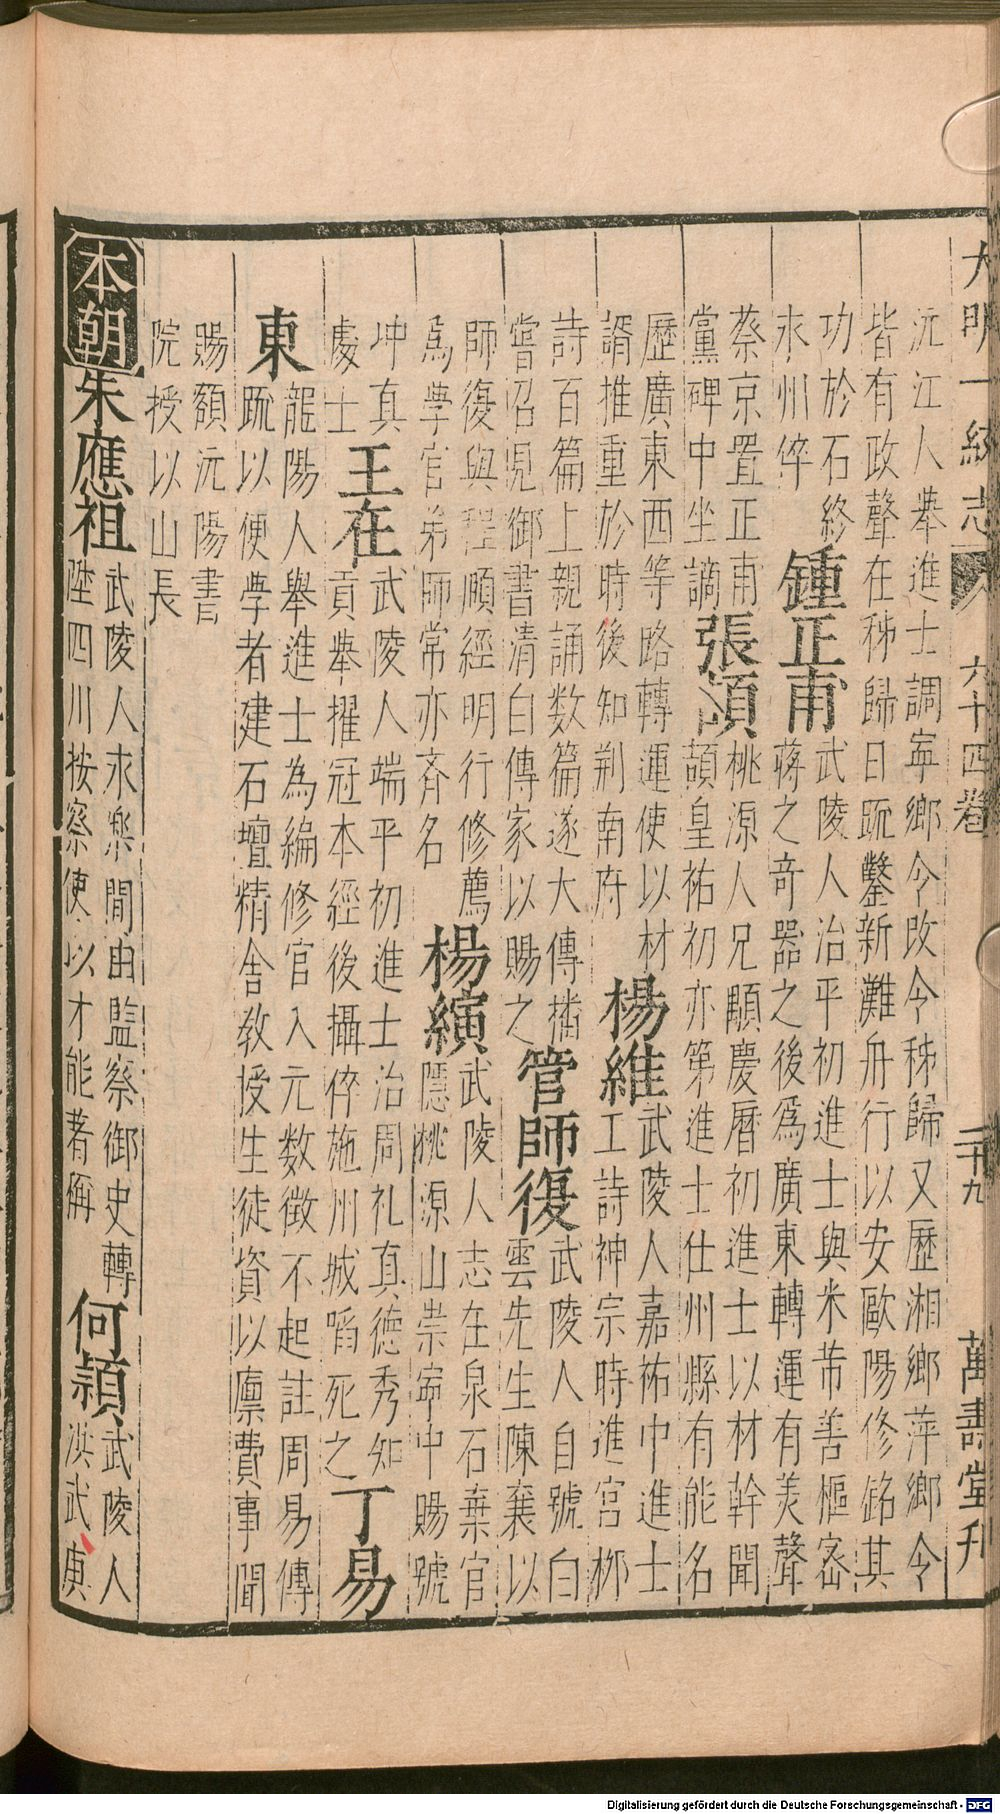 大明一統志 六十四卷 二十九 萬壽堂刊
沅江人舉進士調寧鄉令改令秭歸又歷湘鄉萍鄉令
皆有政聲在秭歸日䟽鑿新灘舟行以安歐陽修銘其
功於石終
永州倅
鍾正甫
武陵人治平初進士與米芾善樞宻
蔣之奇器之後爲廣東轉運有羙聲
蔡京置正甫
黨碑中坐謫
張頡
桃源人兄顒慶曆初進士以材幹聞
頡皇祐初亦第進士仕州縣有能名
歷廣東西等路轉運使以材
諝推重於時後知荆南府
楊維
武陵人嘉祐中進士
工詩神宗時進宮栁
詩百篇上親誦数篇遂大傳播
嘗召見御書清白傳家以賜之
管師復
武陵人自號白
雲先生陳襄以
師復與程頤經明行修薦
爲學官弟師常亦斉名
楊縯
武陵人志在泉石棄官
隱桃源山崇寧中賜號
冲真
處士
王在
武陵人端平初進士治周礼真德秀知
貢舉擢冠本經後攝倅施州城䧟死之
丁易
東
龍陽人舉進士為編修官入元数徵不起註周易傳
䟽以便学者建石壇精舎敎授生徒資以廪費事聞
賜額沅陽書
院授以山長
本朝
朱應祖
武陵人永樂間由監察御史轉
陞四川按察使以才能著稱
何潁
武陵人
洪武庚